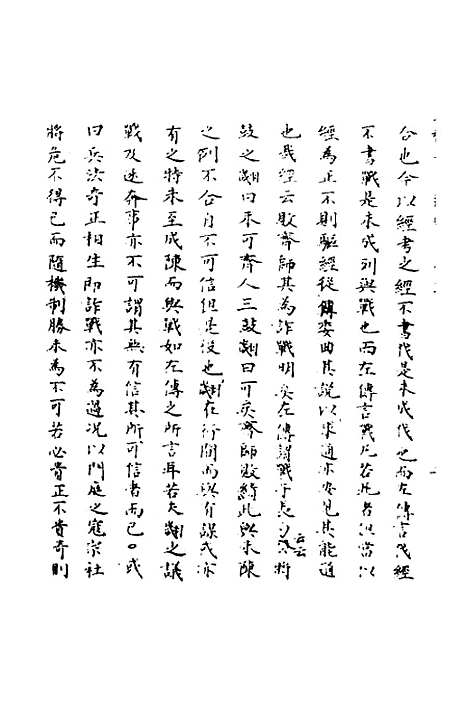 合也今以經書之經不書伐是未成伐也而左傳言伐經
不書戰是未成列與戰也而左傳言戰凡若此者但當以
經為正不則驅經從傳委曲其說以求通未見其能通
也哉經云敗齊師其為詐戰明矣左傳謂戰于長勺公將
鼓之劌曰未可齊人三鼓劌曰可矣齊師敗績此與未陳
之例不合自不可信但是役也劌在行間而與有謀或亦
有之特未至成陳而與戰如左傳之所言耳若夫劌之議
戰及逐奔事亦不可謂其無有信其所可信者而已○或
曰兵法奇正相生即詐戰亦不為過況以門庭之寇宗社
將危不得已而隨機制勝未為不可若必貴正不貴奇則
云云